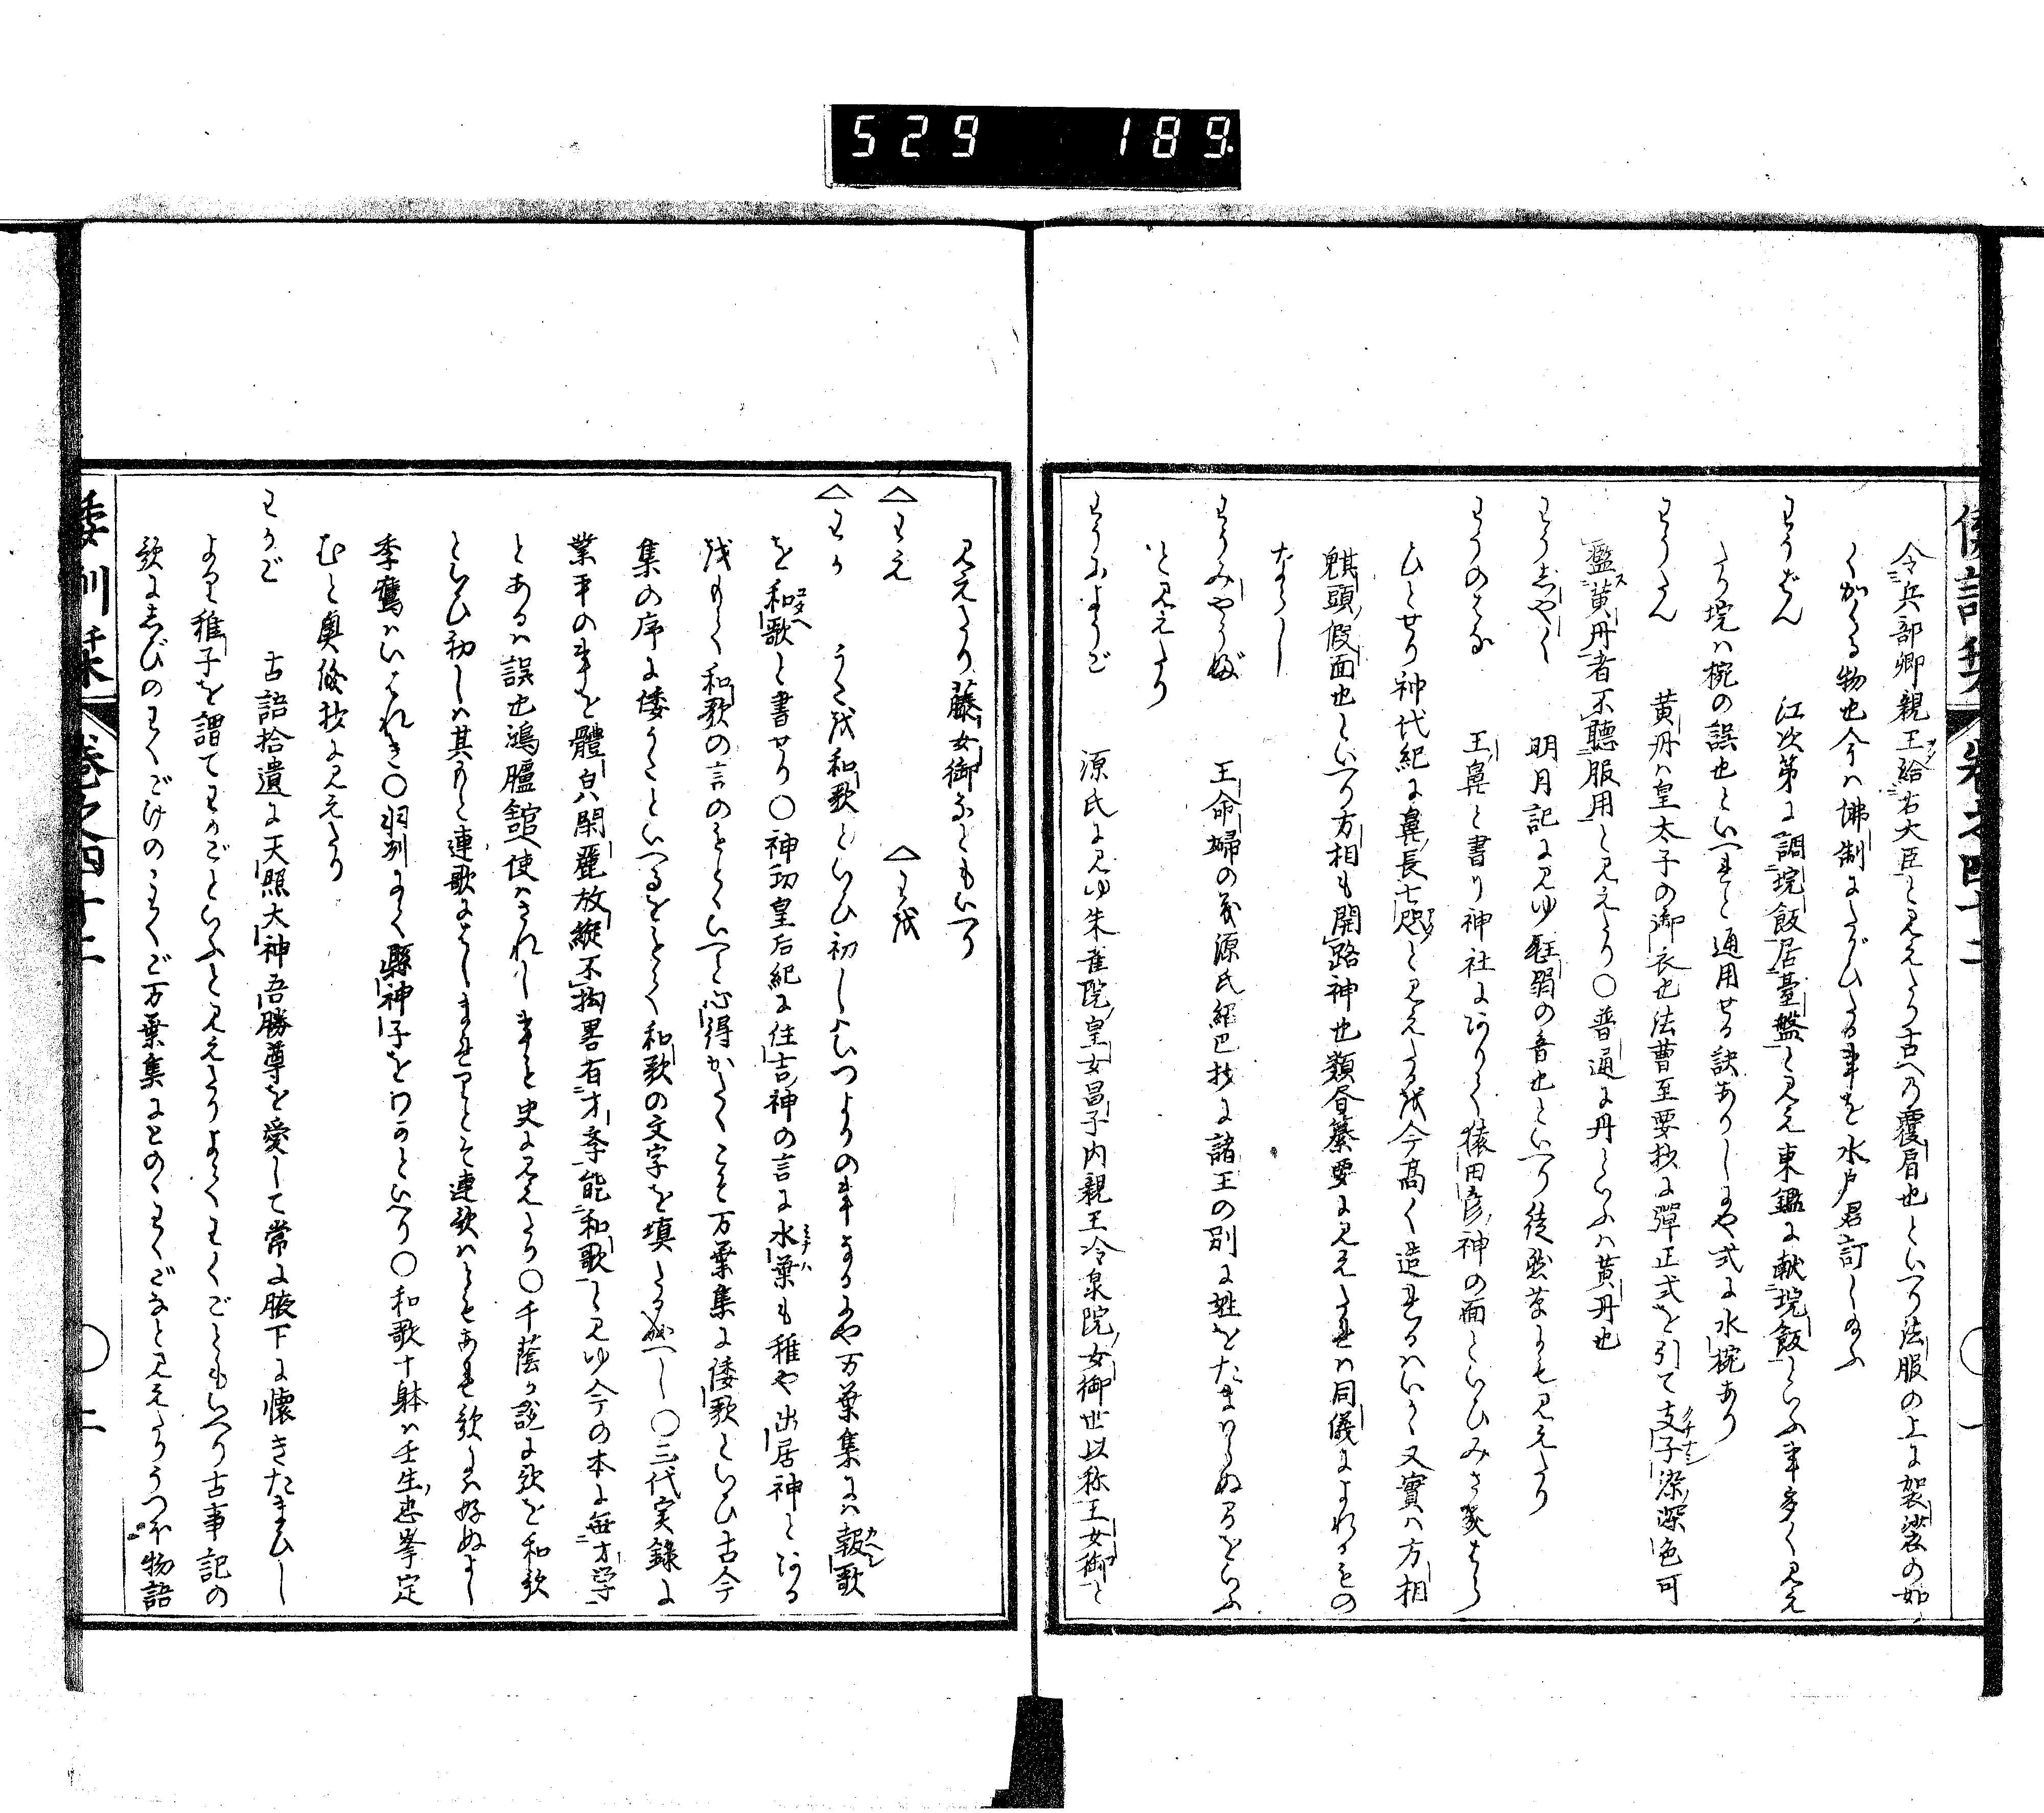 529 189
倭訓栞 巻之四十二 〇 一
令兵部卿親王給右大臣と見えたり古への覆肩也といへり法服の上に袈裟の如
くかくる物也今は佛制にたがひたる事を水戸君訂し給ふ
わうばん 江次第に調垸飯居臺盤と見え東鑑に献垸飯といふ事多く見え
たり垸は椀の誤也といへれと通用せる訣ありしにや式に水椀あり
わうたん 黄丹は皇太子の御衣也法曹至要抄に彈正式を引て支子染深色可
濫黄丹者不聽服用と見えたり〇普通に丹といふは黄丹也
わうじやく 明月記に見ゆ尩弱の音也といへり徒然草にも見えたり
わうのはな 王鼻と書り神社にありて猿田彦神の面といひみさき
ひとせり神代紀に鼻長七咫と見えたるを今高く造れるはいかゝ又實は方相
魌頭假面也といへり方相も開路神也類合纂要に見えたれは同儀によれるもの
なるへし
わうみやうぶ 王命婦の義源氏紹巴抄に諸王の別に姓をたまはらぬ君をいふ
と見えたり
わうにようご 源氏に見ゆ朱雀院皇女昌子内親王冷泉院女御世以称王女御と
見えたり藤女御なともいへり
△わえ △わを
△わか うたを和歌といひ初しはいつよりの事なるにや万葉集には報歌
を和歌と書せり〇神功皇后紀に住吉神の言に水葉も稚や出居神とある
をもて和歌の言のもとといへと心得かたくこそ万葉集に倭歌といひ古今
集の序に倭うたといへるをもとて和歌の文字を填たるなへし〇三代実録に
業平の事を體皃閑麗放縦不拘畧有才学能和歌と見ゆ今の本に無才学
とあるは誤也鴻臚舘使はされし事と史に見えたり〇千蔭か説に歌を和歌
といひ初しは其もと連歌によしまれりとそ連歌はともあれ歌には好ぬよし
季鷹はいはれき〇羽州にて縣神子をワカといへり〇和歌十躰は壬生忠岑定
むと奥儀抄に見えたり
わかご 古語拾遺に天照大神吾勝尊を愛して常に腋下に懐きたまひし
より稚子を謂てわかごといふと見えたりよてわくごともいへり古事記の
歌にしびのわくごけのわくご万葉集にとのゝわくごなと見えたりうつほ物語
倭訓栞 巻之四十二 〇 二